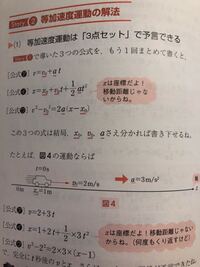 Story ② 等加速度運動の解法
▶(1) 等加速度運動は「3点セット」で予言できる
Story ① で導いた3つの公式を、もう1回まとめて書くと、
[公式㋐] v=v₀+at
[公式㋑] x=x₀+v₀t+1/2at²
[公式㋒] v²−v₀²=2a(x−x₀)
xは座標だよ!
移動距離じゃな
いからね。
この3つの式は結局、x₀, v₀, aさえ分かれば書き下せるね。
たとえば、図4の運動ならば
t=0s
v₀=2m/s
a=3m/s²
0m x₀=1m
図4
[公式㋐] v=2+3t
[公式㋑] x=1+2t+1/2×3t²
[公式㋒] v²−2²=2×3×(x−1)
xは座標だよ!
移動距離じゃない
からね。
(何度もくり返すけど)
で、完全に